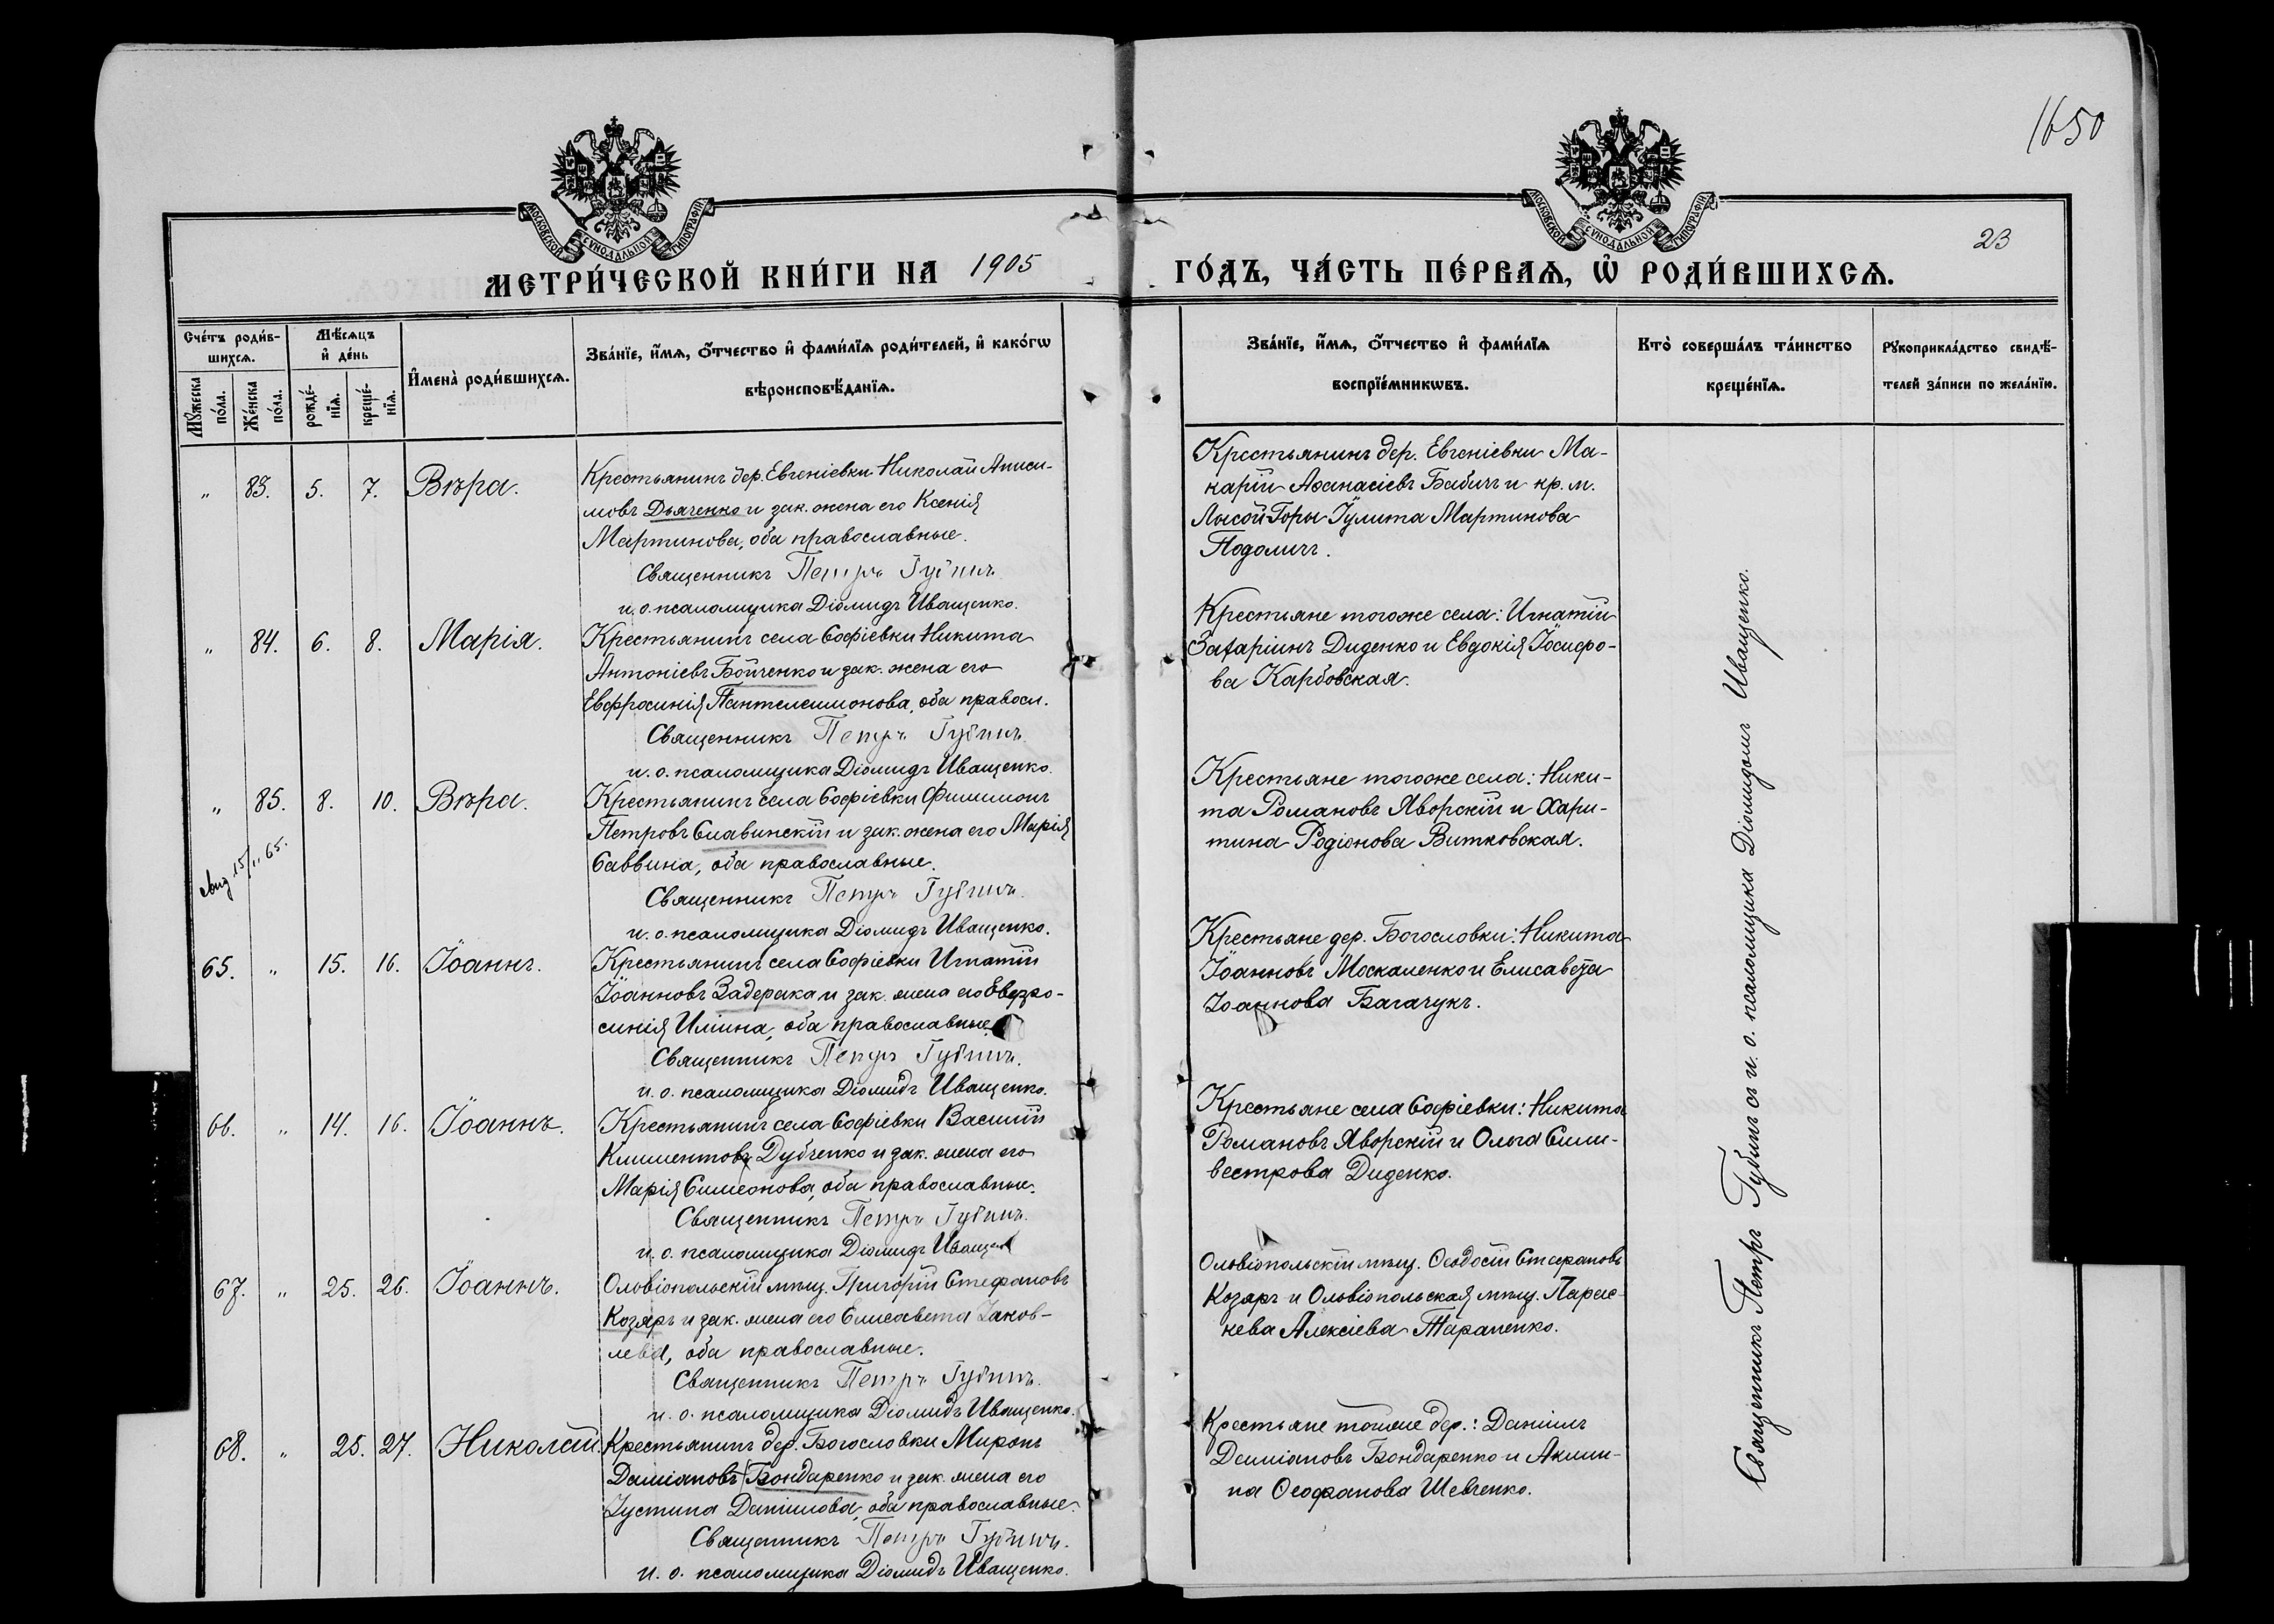 1650
23
МОСКОВСКОЙ СѴНОДАЛЬНОЙ ТИПОГРАФІИ
МОСКОВСКОЙ СѴНОДАЛЬНОЙ ТИПОГРАФІИ
МЕТРИ́ЧЕСКОЙ КНИ́ГИ НА 1905 ГО́ДЪ, ЧА́СТЬ ПЕ́РВАѦ, Ѡ҆ РОДИ́ВШИХСѦ.
Сче́тъ роди́в-
шихсѧ.
Мꙋ́жеска по́ла.
Же́нска по́ла.
Мѣ́сѧцъ
и҆ де́нь
рожде́-
нїѧ.
креще́-
нїѧ.
И҆мена̀ роди́вшихсѧ.
Зва́нїе, и҆́мѧ, ѻ҆́тчество и҆ фами́лїѧ роди́телей, и҆ како́гѡ
вѣроисповѣ́данїѧ.
Зва́нїе, и҆́мѧ, ѻ҆́тчество и҆ фами́лїѧ
воспрїе́мникѡвъ.
Кто̀ соверша́лъ та́инство
креще́нїѧ.
Рꙋкоприкла́дство свидѣ́-
телей за́писи по жела́нїю.
„ 83. 5. 7. Вѣра.
Крестьянинъ дер. Евгеніевки Николай Аниси-
мовъ Дьяченко и зак. жена его Ксенія
Мартинова, оба православные.
Священникъ Петръ Губинъ.
и. о. псаломщика Діомидъ Иващенко.
Крестьянинъ дер. Евгеніевки Ма-
карій Аѳанасіевъ Бабичъ и кр. м.
Лысой Горы Іулита Мартинова
Подоличъ.
„ 84. 6. 8. Марія.
Крестьянинъ села Софіевки Никита
Антоніевъ Бойченко и зак. жена его
Евфросинія Пантелеимонова, оба правосл.
Священникъ Петръ Губинъ.
и. о. псаломщика Діомидъ Иващенко.
Крестьяне тогоже села: Игнатій
Захаріинъ Диденко и Евдокія Іосифо-
ва Карбовская.
„ 85. 8. 10. Вѣра.
Крестьянинъ села Софіевки Филимонъ
Петровъ Славинскій и зак. жена его Марія
Саввина, оба православные.
Священникъ Петръ Губинъ.
и. о. псаломщика Діомидъ Иващенко.
Крестьяне тогоже села: Ники-
та Романовъ Яворскій и Хари-
тина Родіонова Витковская.
65. „ 15. 16. Іоаннъ.
Крестьянинъ села Софіевки Игнатій
Іоанновъ Задерака и зак. жена его Евфро-
синія Иліина, оба православные.
Священникъ Петръ Губинъ.
и. о. псаломщика Діомидъ Иващенко.
Крестьяне дер. Богословки: Никита
Іоанновъ Москаленко и Елисавета
Іоаннова Багачукъ.
66. „ 14. 16. Іоаннъ.
Крестьянинъ села Софіевки Василій
Климентовъ Дубченко и зак. жена его
Марія Симеонова, оба православные.
Священникъ Петръ Губинъ.
и. о. псаломщика Діомидъ Иващен
Крестьяне села Софіевки: Никита
Романовъ Яворскій и Ольга Сили-
вестрова Диденко.
67. „ 25. 26. Іоаннъ.
Ольвіопольскій мѣщ. Григорій Стефановъ
Козяръ и зак. жена его Елисавета Іаков-
лева, оба православные.
Священникъ Петръ Губинъ.
и. о. псаломщика Діомидъ Иващенко.
Ольвіопольскій мѣщ. Ѳеодосій Стефановъ
Козяръ и Ольвіопольская мѣщ. Парас-
кева Алексіева Тараненко.
68. „ 25. 27. Николай.
Крестьянинъ дер. Богословки Миронъ
Даміановъ Бондаренко и зак. жена его
Іустина Даніилова, оба православные.
Священникъ Петръ Губинъ.
и. о. псаломщика Діомидъ Иващенко.
Крестьяне тойже дер.: Даніилъ
Даміановъ Бондаренко и Акили-
на Ѳеофанова Шевченко.
Священникъ Петръ Губинъ съ и. о. псаломщика Діомидомъ Иващенко.